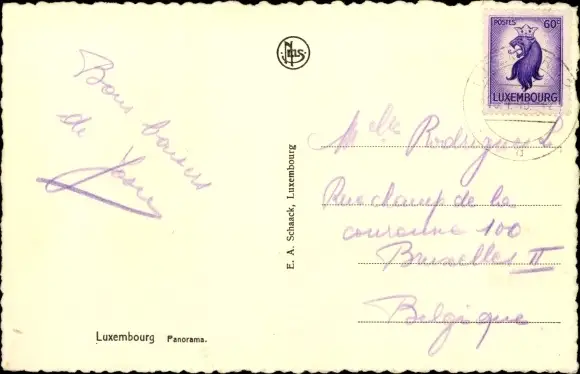 Bons baisers
de Josée
Nels
POSTES 60c
LUXEMBOURG
E. A. Schaack, Luxembourg
Melle Rodrigues L
Rue champ de la
couronne 100
Bruxelles II
Belgique
Luxembourg Panorama.